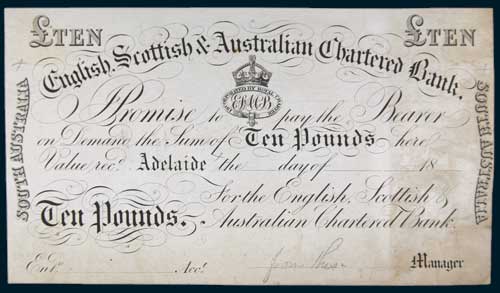 £TEN £TEN
English, Scottish & Australian Chartered Bank.
INCORPORATED BY ROYAL CHARTER
SOUTH AUSTRALIA
SOUTH AUSTRALIA
I Promise to pay the Bearer
on Demand the Sum of Ten Pounds here
Value recd. Adelaide the day of 18
For the English, Scottish &
Ten Pounds. Australian Chartered Bank.
Entd. Acct.
Manager